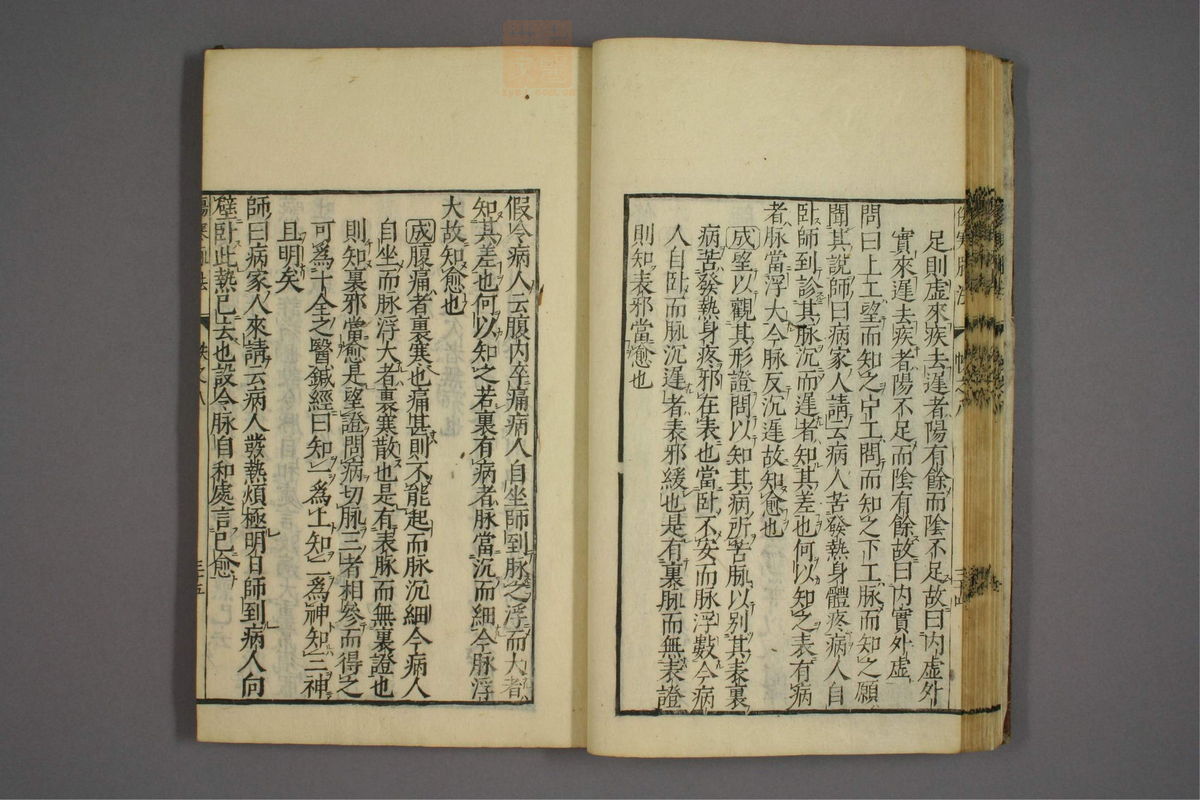 足則虛來疾去遲者陽有餘而陰不足故曰內虛外
實來遲去疾者陽不足而陰有餘故曰內實外虛
問曰上工望而知之中工問而知之下工脉而知之願
聞其說師曰病家人請云病人苦發熱身體疼病人自
臥師到診其脉沉而遲者知其差也何以知之表有病
者脉當浮大今脉反沉遲故知愈也
成望以觀其形證問以知其病所苦脉以別其表裏
病苦發熱身疼邪在表也當臥不安而脉浮數今病
人自臥而脉沉遲者表邪緩也是有裏脉而無表證
則知表邪當愈也
假令病人云腹內卒痛病人自坐師到脉之浮而大者
知其差也何以知之若裏有病者脉當沉而細今脉浮
大故知愈也
成腹痛者裏寒也痛甚則不能起而脉沉細今病人
自坐而脉浮大者裏寒散也是有表脉而無裏證也
則知裏邪當愈是望證問病切脉三者相參而得之
可為十全之醫鍼經曰知一為上知二為神知三神
且明矣
師曰病家人來請云病人發熱煩極明日師到病人向
壁臥此熱已去也設令脉自和處言已愈
卷之八
三十五